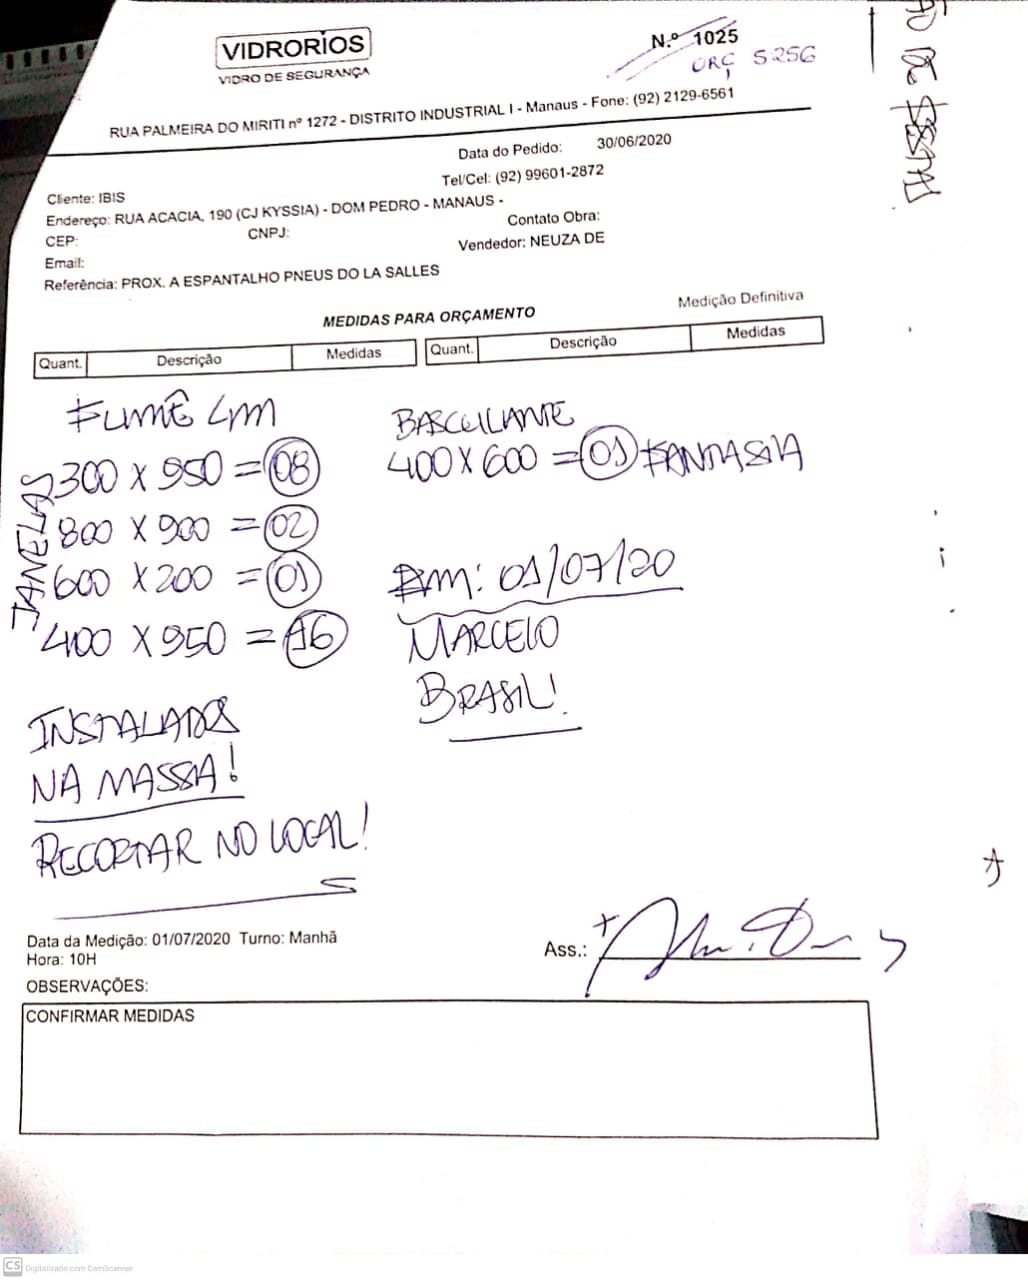 VIDRORIOS
VIDRO DE SEGURANÇA
N.º 1025
ORÇ 5256
RUA PALMEIRA DO MIRITI nº 1272 - DISTRITO INDUSTRIAL I - Manaus - Fone: (92) 2129-6561
Data do Pedido: 30/06/2020
Cliente: IBIS
Tel/Cel: (92) 99601-2872
Endereço: RUA ACACIA, 190 (CJ KYSSIA) - DOM PEDRO - MANAUS -
CEP:
CNPJ:
Contato Obra:
Email:
Vendedor: NEUZA DE
Referência: PROX. A ESPANTALHO PNEUS DO LA SALLES
MEDIDAS PARA ORÇAMENTO
Medição Definitiva
Quant. Descrição Medidas Quant. Descrição Medidas
FUMÊ 4m
JANELAS
300 X 950 = 08
800 X 900 = 02
600 X 200 = 01
400 X 950 = 16
INSTALADOS
NA MASSA!
RECORTAR NO LOCAL!
BASCULANTE
400 X 600 = 01 FANTASIA
Em: 01/07/20
MARCELO
BRASIL!
Data da Medição: 01/07/2020 Turno: Manhã
Hora: 10H
Ass.:
OBSERVAÇÕES:
CONFIRMAR MEDIDAS
CS Digitalizado com CamScanner